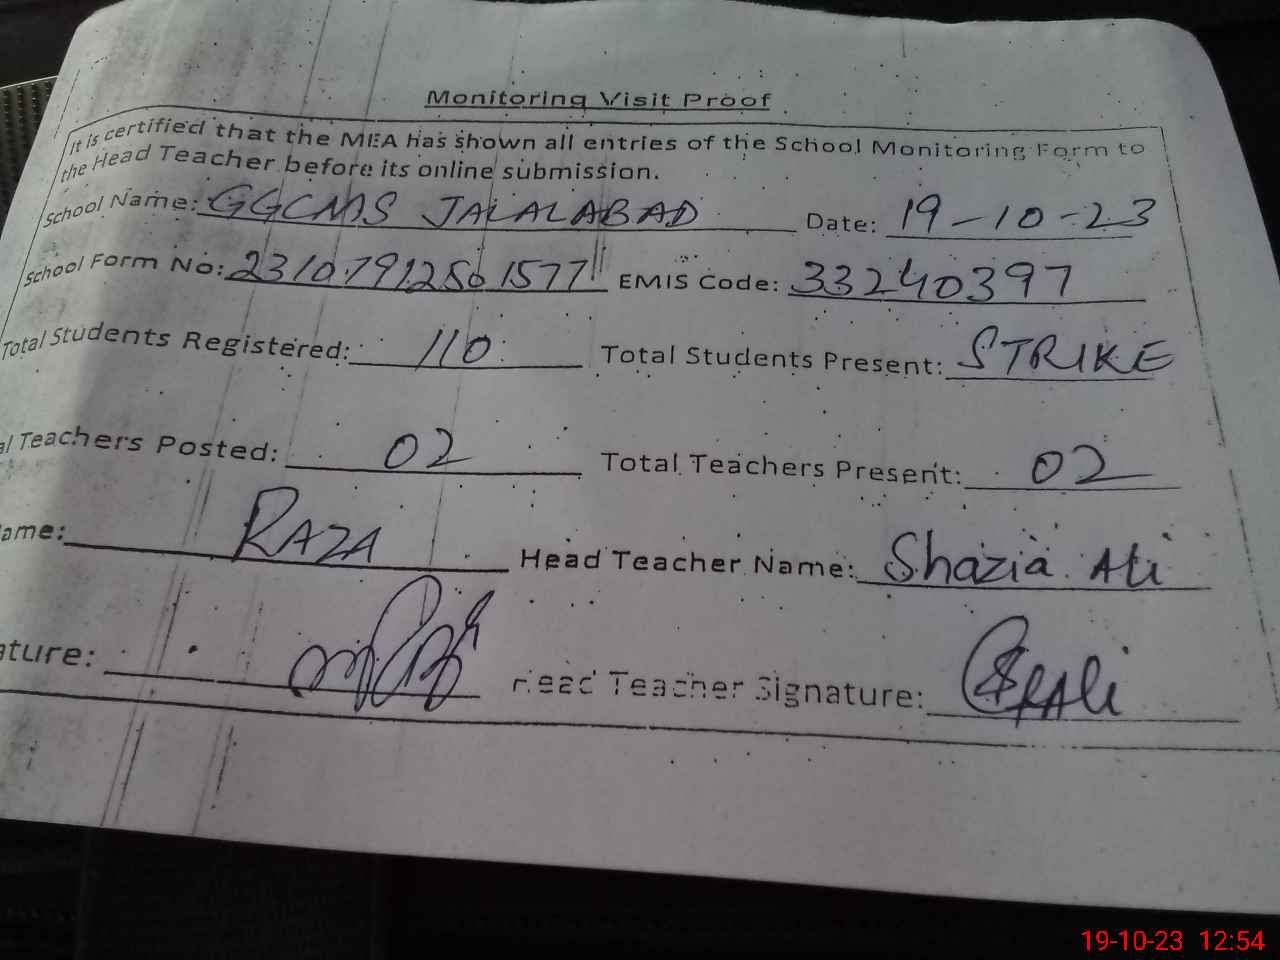 Monitoring Visit Proof
It is certified that the MEA has shown all entries of the School Monitoring Form to
the Head Teacher before its online submission.
School Name: GGCMS JALALABAD Date: 19-10-23
School Form No: 2310791250 1577 EMIS Code: 33240397
Total Students Registered: 110 Total Students Present: STRIKE
al Teachers Posted: 02 Total Teachers Present: 02
ame: RAZA Head Teacher Name: Shazia Ali
ature: Head Teacher Signature:
19-10-23 12:54